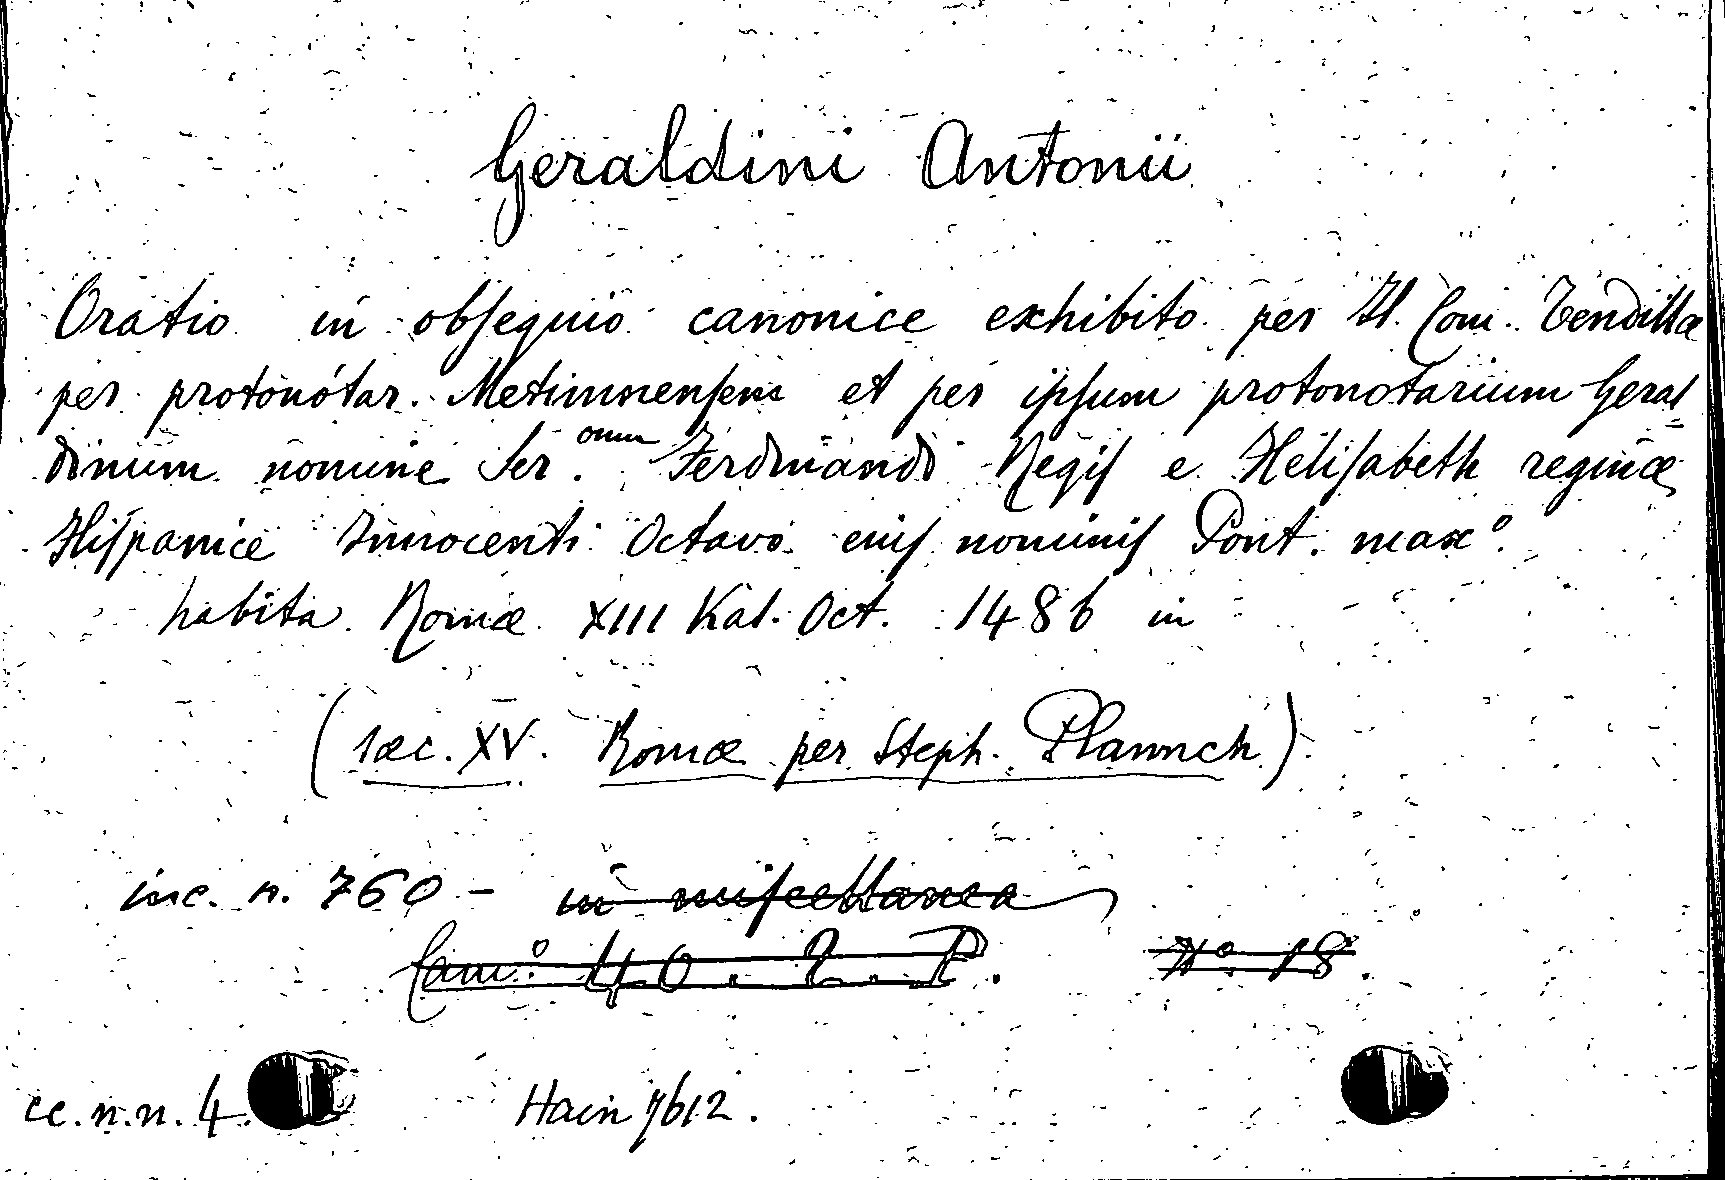 Geraldini Antonii
Oratio in obsequio canonice exhibito per Il. Com. Tendillæ
per protonótar. Metimnensem et per ipsum protonotarium Geral
dinum nomine Ser.omm Ferdinandi Regis e Helisabeth reginæ
Hispanice Innocenti Octavo eius nominis Pont. max.º
habita Romæ XIII Kal. Oct. 1486 in
(sæc. XV. Romæ per Steph. Plannck)
inc. n. 760 - in miscellanea
Cam.º 40. 2. P. Nº. 18.
cc. n. n. 4. Hain 7612.